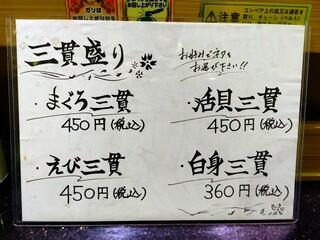 三貫盛り
お好みでネタを
お選び下さい!!
・まぐろ三貫
450円(税込)
・活貝三貫
450円(税込)
・えび三貫
450円(税込)
・白身三貫
360円(税込)
注意